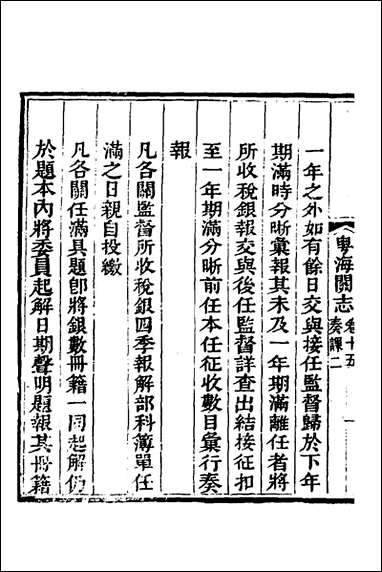 粵海關志 卷十五 奏課二 一
一年之外如有餘日交與接任監督歸於下年
期滿時分晰彙報其未及一年期滿離任者將
所收稅銀報交與後任監督詳查出結接征扣
至一年期滿分晰前任本任征收數目彙行奏
報
凡各關監督所收稅銀四季報解部科簿單任
滿之日親自投繳
凡各關任滿具題卽將銀數冊籍一同起解仍
於題本內將委員起解日期聲明題報其冊籍